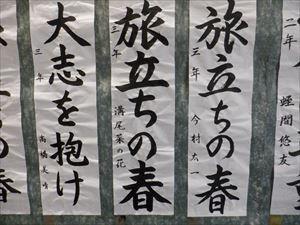 二年 蛭間悠友
旅立ちの春
三年 今村太一
旅立ちの春
三年 溝尾菜の花
大志を抱け
三年